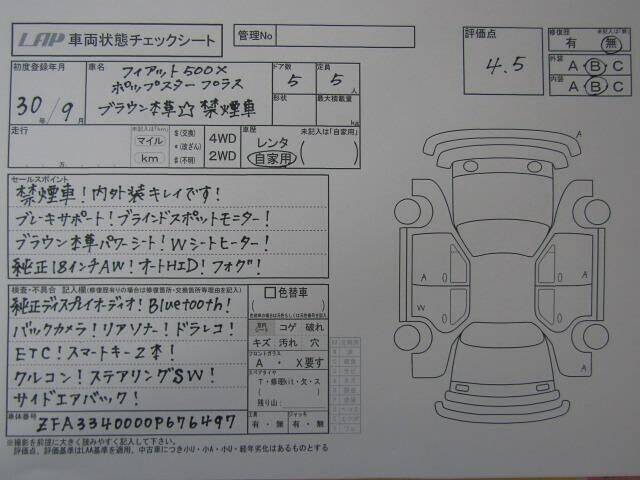 LAP 車両状態チェックシート
管理No
評価点
4.5
修復歴
有 無
外装 A B C
内装 A B C
初度登録年月
30年/9月
車名
フィアット500X
ポップスター プラス
ブラウン本革☆禁煙車
ドア数
5
定員
5人
形状
最大積載量
kg
走行
万
未記入は「km」
マイル
km
$(交換)
*(改ざん)
#(不明)
4WD
2WD
車歴
未記入は「自家用」
レンタ
自家用
セールスポイント
禁煙車!内外装キレイです!
ブレーキサポート!ブラインドスポットモニター!
ブラウン本革パワーシート!Wシートヒーター!
純正18インチAW!オートHID!フォグ!
検査・不具合 記入欄(修復歴有りの場合は修復箇所・交換箇所等理由を記入)
純正ディスプレイオーディオ!Bluetooth!
バックカメラ!リアソナー!ドラレコ!
ETC!スマートキー2本!
クルコン!ステアリングSW!
サイドエアバック!
色替車
コゲ 破れ
キズ 汚れ 穴
フロントガラス
A ・ X要す
スペアタイヤ
T・修理kit・欠・ス
残り山:
工具
有・無
ジャッキ
有・無
車体番号
ZFA3340000P676497
※撮影を前提に大きく読みやすく記入して下さい。
評価点、評価基準はLAA基準を適用。中古車につき小U・小A・小U・経年劣化はあるものとする
A
A
A
W
A